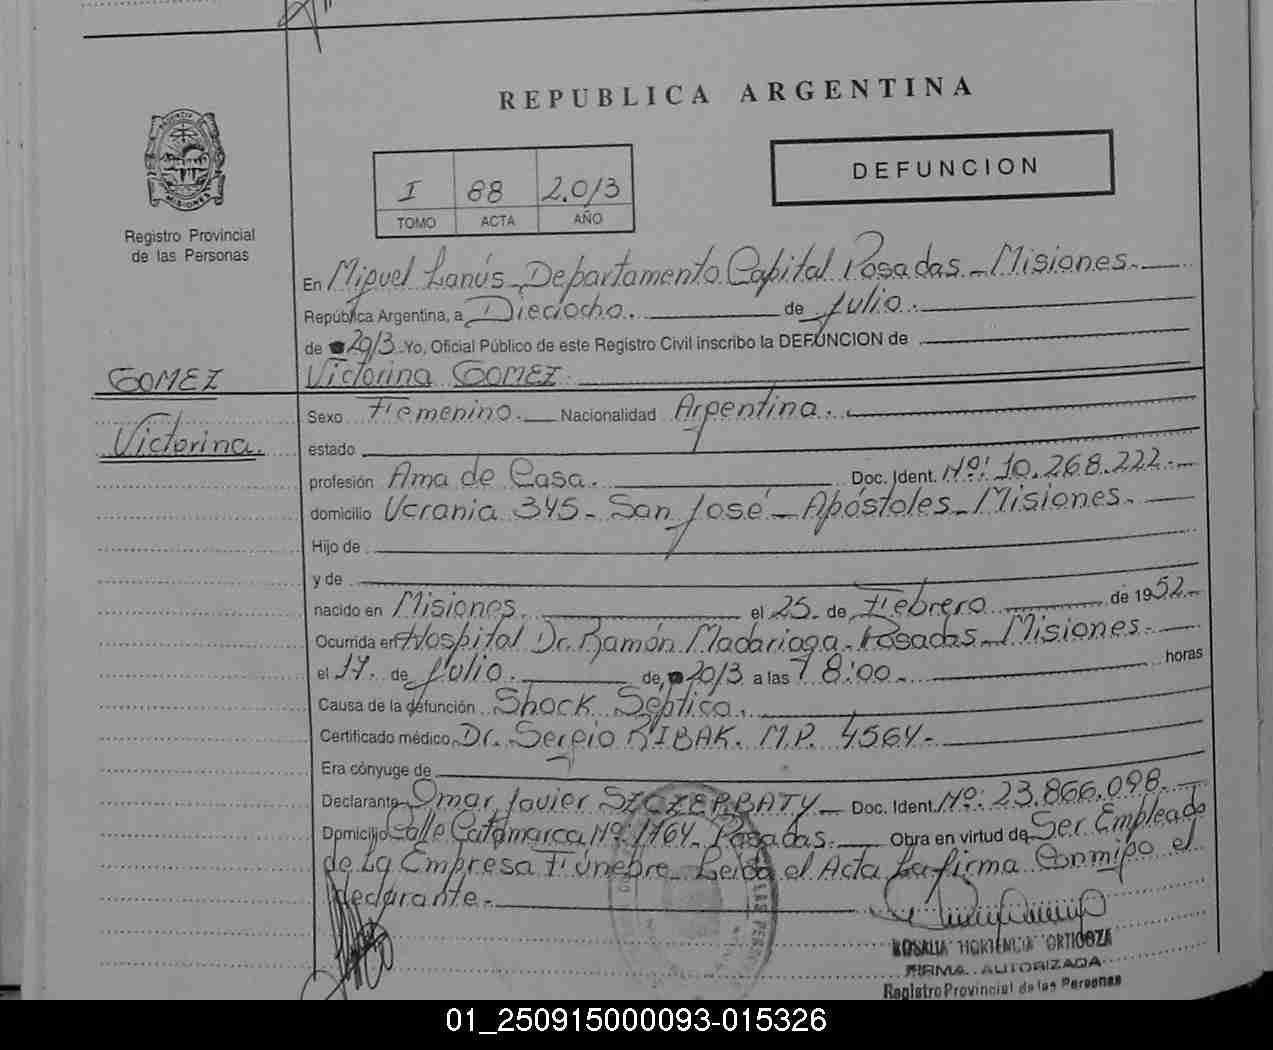 REPUBLICA ARGENTINA
DEFUNCION
I 88 2.013
TOMO ACTA AÑO
PROVINCIA DE
MISIONES
Registro Provincial
de las Personas
En Miguel Lanús, Departamento Capital Posadas - Misiones.
República Argentina, a Dieciocho. de Julio.
de 2013. Yo, Oficial Público de este Registro Civil inscribo la DEFUNCION de
GOMEZ
Victorina GOMEZ.
Victorina.
Sexo Femenino. Nacionalidad Argentina.
estado
profesión Ama de Casa. Doc. Ident. Nº: 10.268.222.-
domicilio Ucrania 345 - San José - Apóstoles - Misiones.
Hijo de
y de
nacido en Misiones. el 25. de Febrero de 1952.-
Ocurrida en Hospital Dr. Ramón Madariaga. Posadas - Misiones.
el 17. de Julio. de 2013 a las 18:00. horas
Causa de la defunción Shock Séptico.
Certificado médico Dr. Sergio RIBAK. M.P. 4564.-
Era cónyuge de
Declarante Omar Javier SZCZERBATY - Doc. Ident. Nº: 23.866.098.
Domicilio Calle Catamarca Nº 1764. Posadas. Obra en virtud de Ser Empleado
de La Empresa Fúnebre. Leida el Acta La firma Conmigo el
declarante.-
ROSALIA HORTENCIA ORTIGOZA
FIRMA AUTORIZADA
Registro Provincial de las Personas
01_250915000093-015326